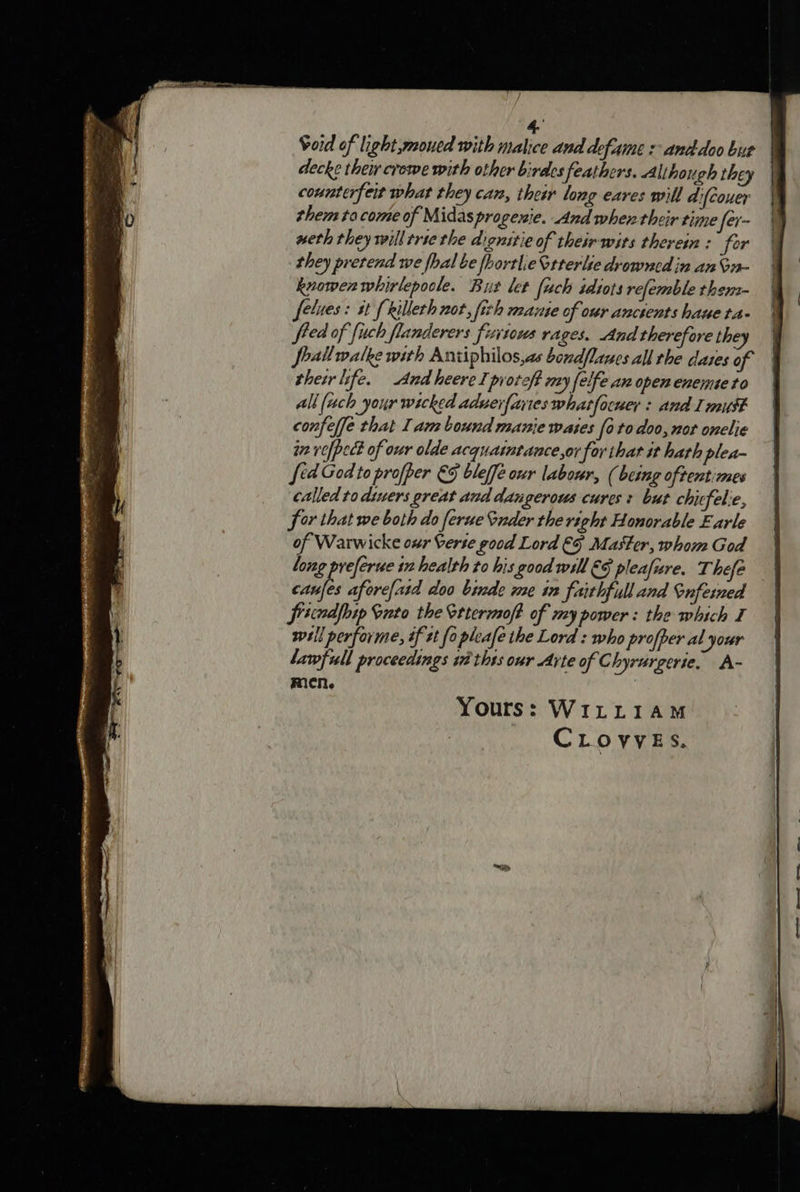 4.
void of light, moued with malice and defame : and doo but
decke their crowe with other birdes feathers. Although they
counterfeit what they can, their long eares will discouer
them to come of Midas progenie. And when their time ser-
ueth they will trie the dignitie of their wits therein : for
they pretend we shal be shortlie vtterlie drowned in an vn-
knowen whirlepoole. But let such idiots resemble them-
selues : it skilleth not, sith manie of our ancients haue ta-
sted of such slanderers furious rages. And therefore they
shall walke with Antiphilos, as bondslaues all the daies of
their life. And heere I protest my selfe an open enemie to
all such your wicked aduersaries whatsoeuer : and I must
confesse that I am bound manie waies so to doo, not onelie
in respect of our olde acquaintance, or for that it hath plea-
sed God to prosper & blesse our labour, (being oftentimes
called to diuers great and dangerous cures : but chiefelie,
for that we both do serue vnder the right Honorable Earle
of Warwicke our verie good Lord & Master, whom God
long preserue in health to his good will & pleasure. These
causes aforesaid doo binde me in faithfull and vnfeined
friendship vnto the vttermost of my power : the which I
will performe, if it so please the Lord : who prosper al your
lawfull proceedings in this our Arte of Chyrurgerie. A-
men.
Yours: WILLIAM
CLOVVES.